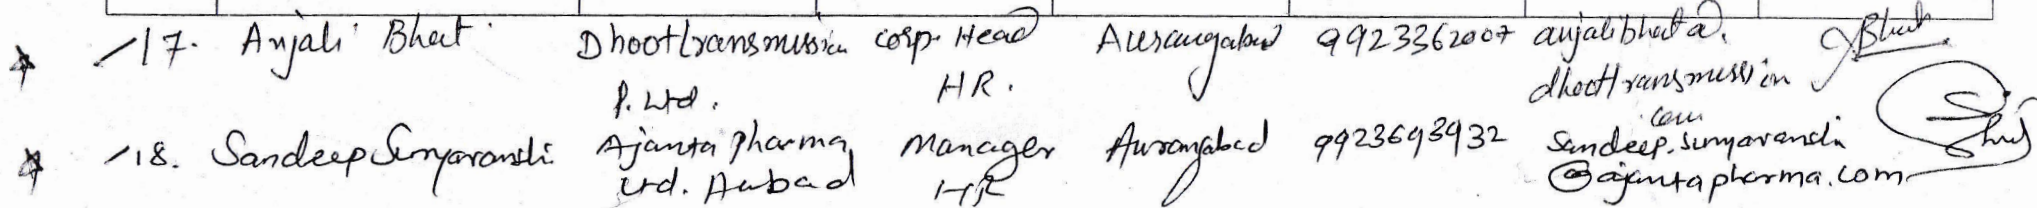 17. Anjali Bhat Dhoot Transmission Corp. Head Aurangabad 9923362007 anjalibhat@.
P. Ltd. HR. dhoottransmission
com
18. Sandeep Suryavanshi Ajanta Pharma Manager Aurangabad 9923693932 Sandeep.Suryavanshi
Ltd. Aubad HR @ajantapharma.com